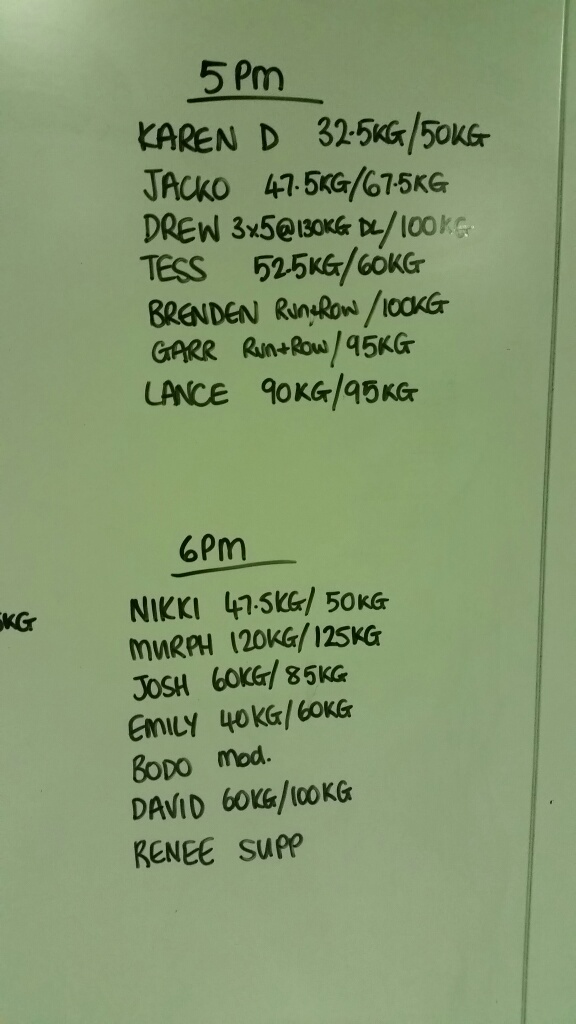 5pm
KAREN D 32.5KG/50KG
JACKO 47.5KG/67.5KG
DREW 3x5@130KG DL/100KG
TESS 52.5KG/60KG
BRENDEN Run+Row/100KG
GARR Run+Row/95KG
LANCE 90KG/95KG
6pm
NIKKI 47.5KG/50KG
KG
MURPH 120KG/125KG
JOSH 60KG/85KG
EMILY 40KG/60KG
BODO mod.
DAVID 60KG/100KG
RENEE SUPP